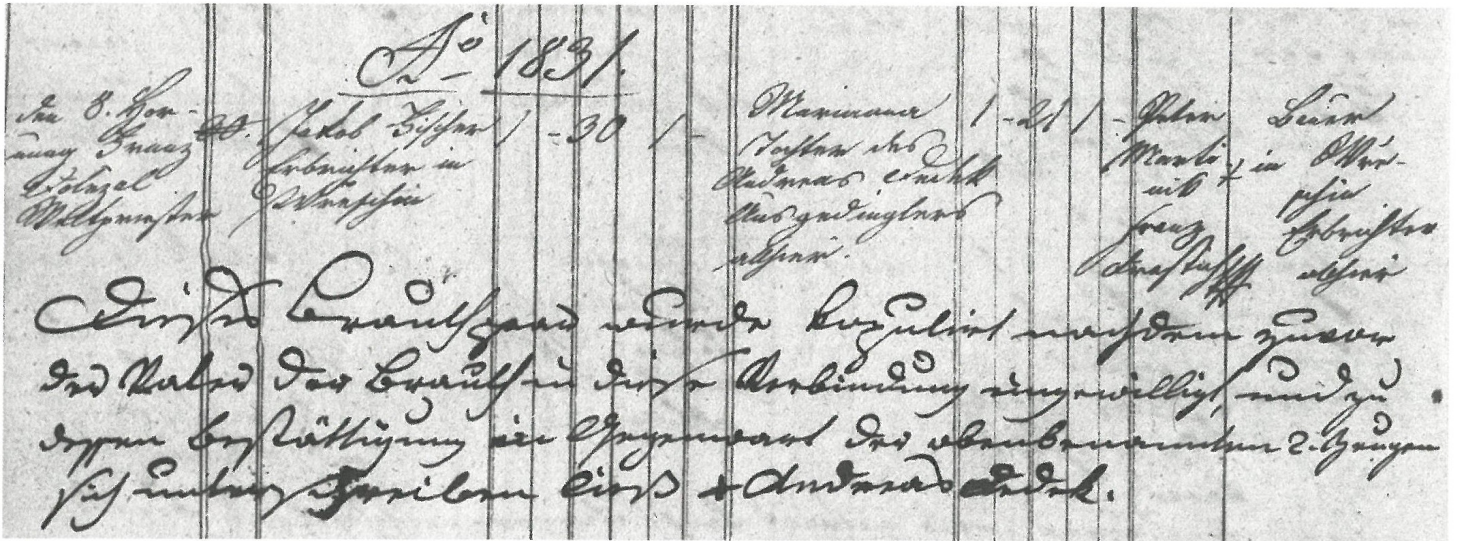 Aō 1831.
den 8. Hor-
nung Franz
Dolezal
Weltpriester
20.
Jakob Bischer
Erbrichter in
Wreschin
1 - 30 1 -
Marianna
Tochter des
Andreas Dedek
Ausgedinglers
alhier.
1 - 21 1 -
Peter
Marti
nik + in
Franz
Bauer
Wre-
schin
Erbrichter
alhier
Dieses Brauthpaar wurde kopulirt nachdem zuvor
der Vater der Brauth in diese Verbindung eingewilligt, und zu
dessen Bestättigung in Gegenwart der obenbenannten 2. Zeugen
sich unterschreiben ließ + Andreas Dedek.